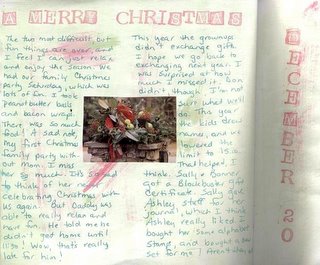 A MERRY CHRISTMAS
The two most difficult, but
fun things are over, and
I feel I can just relax
and enjoy the season. We
had our family Christmas
party Saturday, which was
lots of fun. I took
peanutbutter balls
and bacon wraps.
There was so much
food! A sad note,
my first Christmas
family party with-
out Mom. I miss
her so much. It's so sad
to think of her never
celebrating Christmas with
us again. But Daddy was
able to really relax and
have fun. He told me he
didn't get home until
11:30! Wow, that's really
late for him!
This year the grownups
didn't exchange gifts.
I hope we go back to
exchanging next year. I
was surprised at how
much I missed it. Don
didn't, though. I'm not
sure what we'll
do. This year
the kids drew
names, and we
lowered the
limit to 15.00
That helped, I
think. Sally & Bonner
got a Blockbuster gift
Certificate. Sally gave
Ashley stuff for her
journal, which I think
Ashley really liked. I
bought her some alphabet
stamps, and bought a
set for me! Aren't they
DECEMBER 20